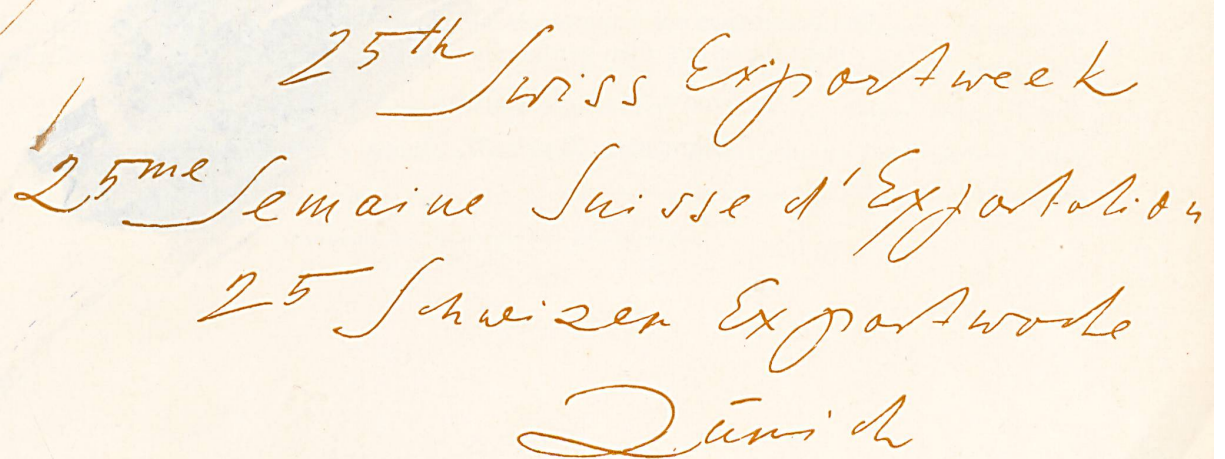 25th Swiss Exportweek
25me Semaine Suisse d'Exportation
25 Schweizer Exportwoche
Zürich